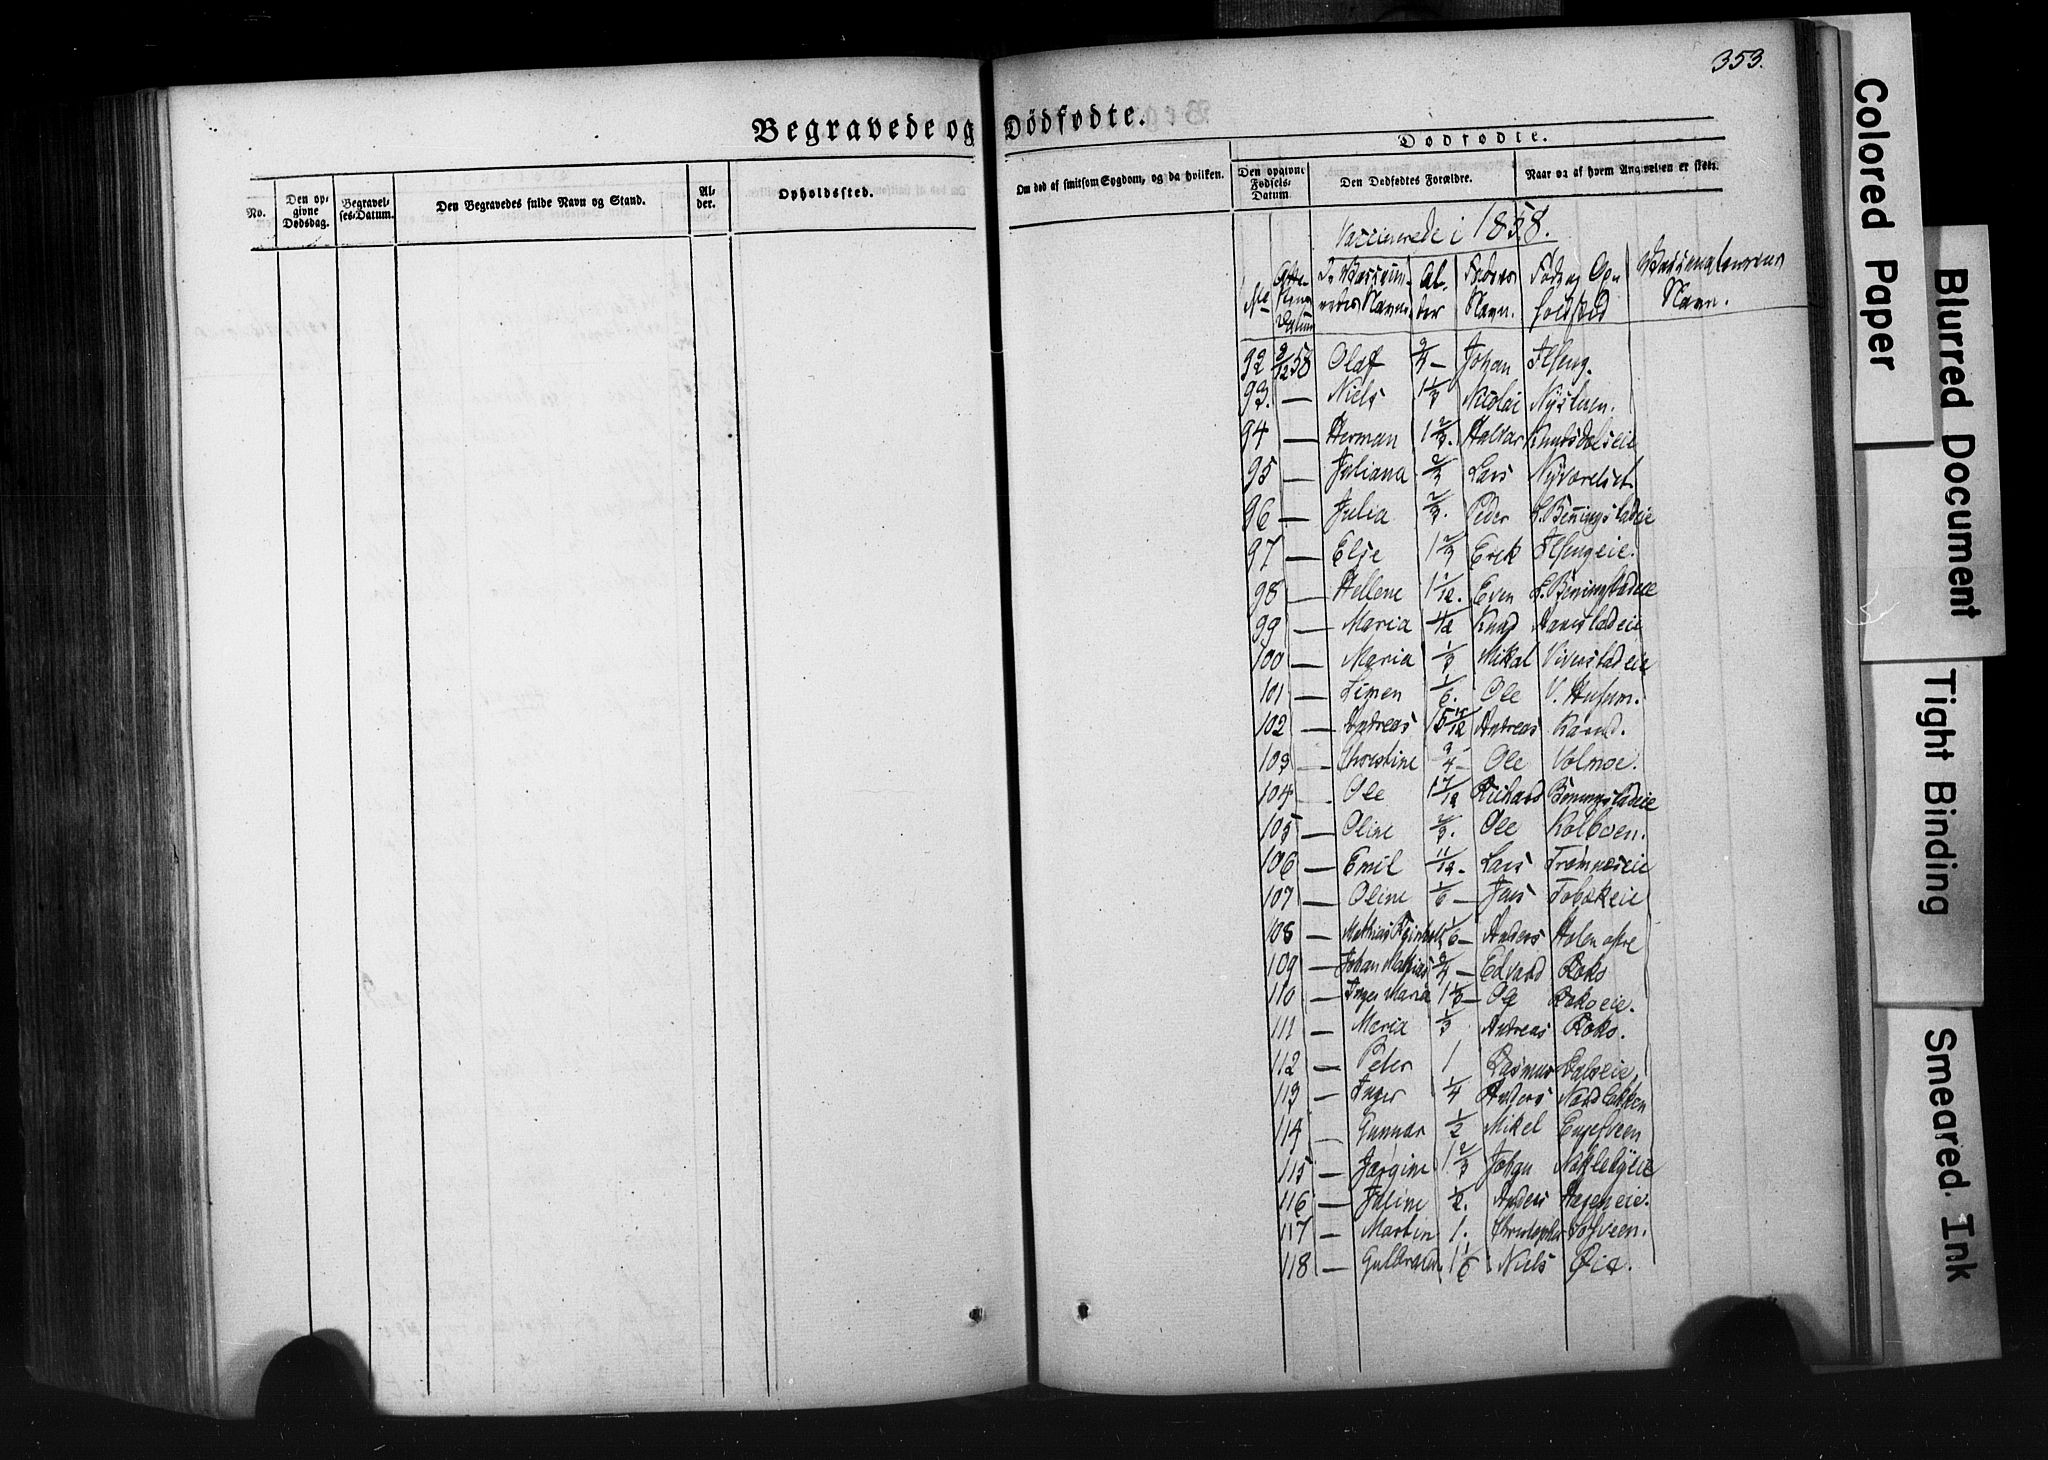 353.
Begravede og Dødfødte.
No.
Den opgivne Dødsdag.
Begravelses-Datum.
Den Begravedes fulde Navn og Stand.
Alder.
Opholdssted.
Om død af smitsom Sygdom, og da hvilken.
Dødfødte.
Den opgivne Fødsels-Datum.
Den Dødfødtes Forældre.
Naar og af hvem Angivelsen er skeet.
Vaccinerede i 1858.
No Datum De Vaccinneredes Navne Alder Faders Navn. Føde og Opholdssted Vaccinateurens Navn.
92 2/12 58 Olaf 3/4 — Johan Ilseng.
93. — Niels 1 1/3 Nicolai Nystuen.
94 — Herman 1 2/3. Halvar Knudsdalseie
95 — Juliana 2/3 Lars
96 — Julia 2/3. Peder L. Beningstadeie
97 — Else 1 2/3 Erek Ilsengeie.
98 — Hellene 1 1/12. Even L. Beningstadeie
99 — Maria Knud
100 — Maria 1/3 Mikal
101 — Simen 1/6. Ole V. Husum.
102 — Andreas Andreas
103 — Christine 3/4 — Ole Volmoe.
104 — Ole Richard Benningstadeie
105 — Oline 2/3. Ole Kolboen.
106 — Emil 11/12. Lars Frømnæseie
107 — Oline 1/6 — Jens Tobøkeie
108 — Mathias 1/6 — Anders Holen østre
109 — Johan Mathias 3/4 — Edvard Roko
110 — Inger Maria 1 1/3 — Ole Rokoeie.
111 — Maria 1/3 Andreas Roko.
112 — Peter 1 Rasmus Dalseie.
113 — Inger 1/4 Anders Nordløkken
114 — Gunnar 1/2 Mikel Engelveen
115 — Jørgine 1 2/3 Johan Nøklebyeie
116 — Juline 1/2. Anders Haseneie.
117 — Martin 1. Christopher Tofveen.
118 — Gulbrand 1 1/6 Niels Øie.
Colored Paper
Blurred Document
Tight Binding
Smeared Ink